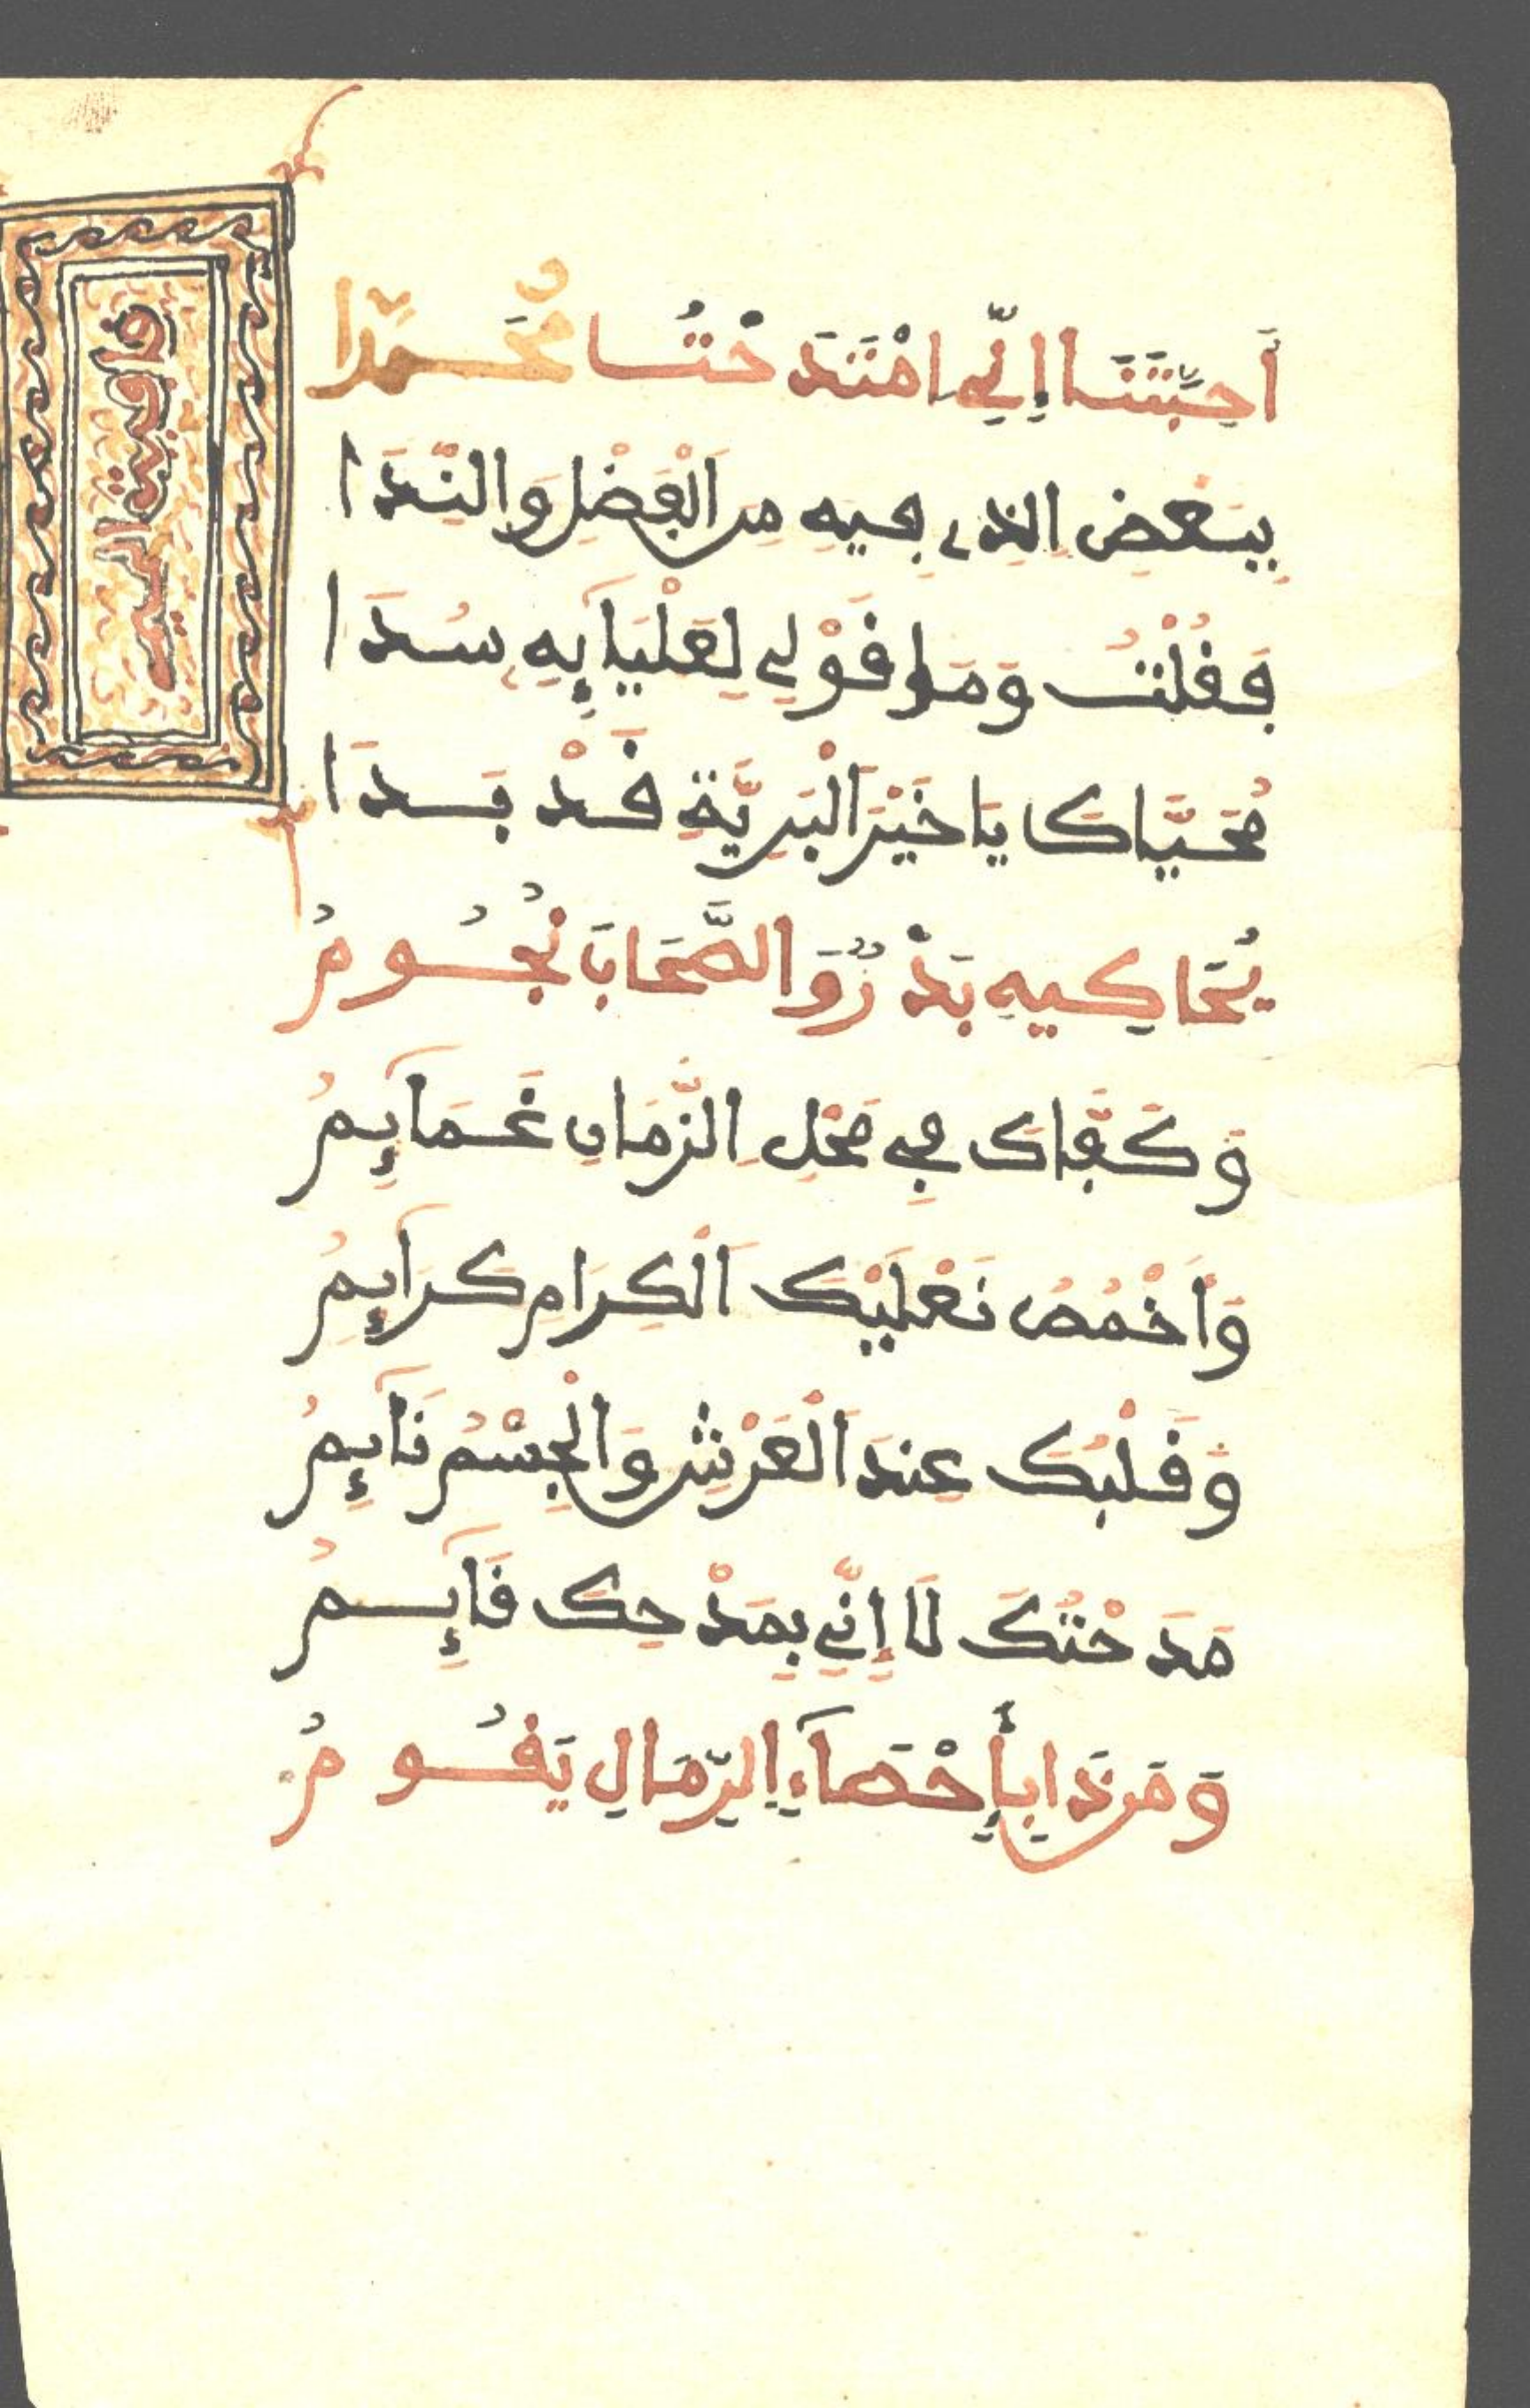 أَحِبَّتَنَا إِنِّي امْتَدَحْتُ مُحَمَّدَا
بِبَعْضِ الَّذِي فِيهِ مِنَ الْفَضْلِ وَالنَّدَا
فَقُلْتُ وَمَا قَوْلِي لِعَلْيَائِهِ سُدَا
مُحَيَّاكَ يَا خَيْرَ الْبَرِيَّةِ قَدْ بَدَا
يُحَاكِيهِ بَدْرٌ وَالصَّحَابَ نُجُومُ
وَكَفَّاكَ فِي مَحْلِ الزَّمَانِ غَمَائِمُ
وَأَخْمُصُ نَعْلَيْكَ الْكِرَامِ كَرَائِمُ
وَقَلْبُكَ عِنْدَ الْعَرْشِ وَالْجِسْمُ نَائِمُ
مَدَحْتُكَ لَا إِنِّي بِمَدْحِكَ قَائِمُ
وَمَن ذَا بِإِحْصَاءِ الرِّمَالِ يَقُومُ
قافية الميم